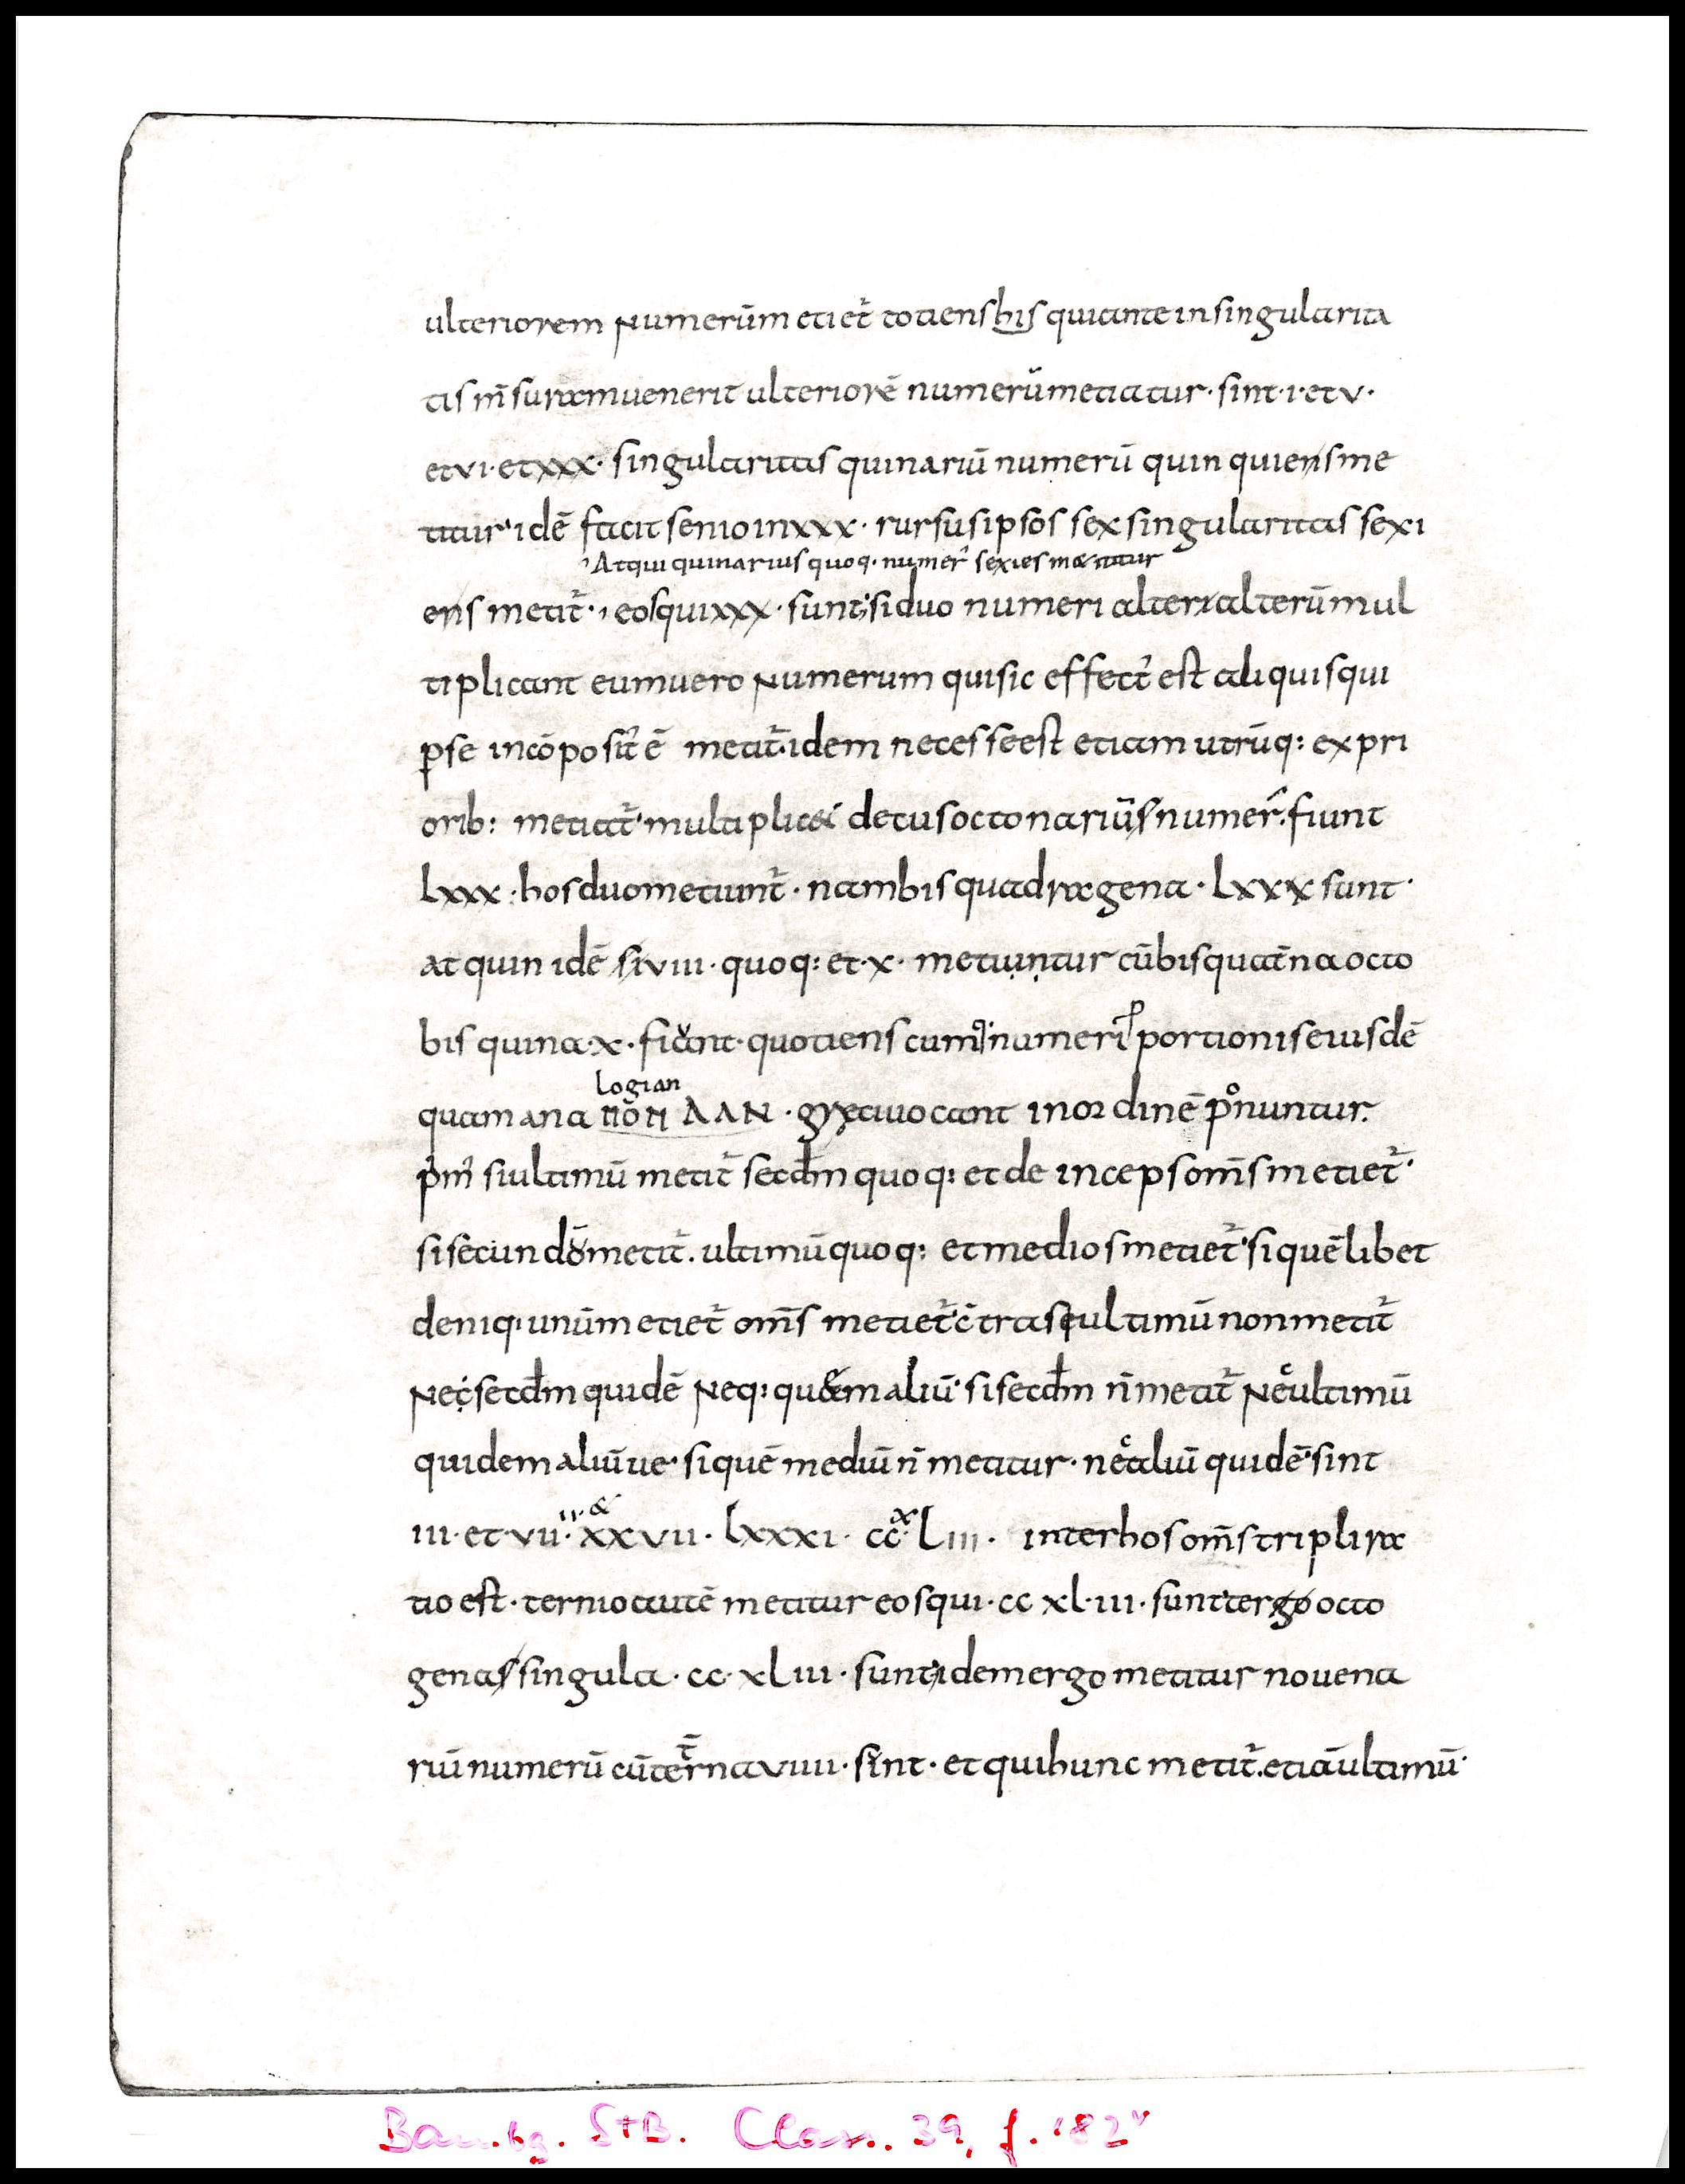 ulteriorem numerūmetiet᷑ totienshis quiante insingularita
tis n̄surammuenerit ulteriorē numerūmetiatur· sint·i·et v·
etvi·etxxx· singularitas quinariū numerū quin quiensme
titur· idē facit senioinxxx· rursusipsos sex singularitas sexi
Atqui quinarius quoq· numer᷑ sexies metitur
ens metit᷑· eosquixxx· sunt·siduo numeri alterialterūmul
tiplicant eumuero numerum quisic effect᷑ est aliquisqui
ꝑse incōposit᷑ ē metit᷑·idem necesseest etiam utrūq: expri
orib: metiat᷑·multiplicet decusoctonariūsnumer᷑·fiunt
lxxx·hosduometiunt᷑· nambisquadragena·lxxx sunt·
atquin idē siviii·quoq: et·x· metiuntur cūbisquat̄naocto
bis quina·x·fiant·quotienscumq· numeri ꝑportioniseiusdē
logian
quamana ΠΟΠ ΛΛΝ·greciuocant inordinē p°nuntur·
pm᷑ siultimū metit᷑ secdm̄ quoq: et de incepsom̄smetiet᷑·
sisecundōmetit᷑· ultimūquoq: etmediosmetiet᷑·siquēlibet
deniq:unūmetiet᷑ om̄s metiet᷑·c̄traseultimūnonmetit᷑
Nec·secdm̄quidē Neq: quemaliū·sisecdm̄ n̄metit᷑ Necultimū
quidemaliūue·siquēmediūn̄ metitur·necaliū quidē·sint
&
iii·et·vii·ii·xxvii·lxxxi·ccxliii· interhosom̄striplira
tio est·ternioautē metitur eosqui·cc xl·iii·sunt·tergo octo
genassingula·cc·xliii·suntidemergo metitur novena
riū numerū cūtern̄aviiii·sint·et quihunc metit᷑·etiāultimū·
Bambg. StB. Class. 39, f. 182v